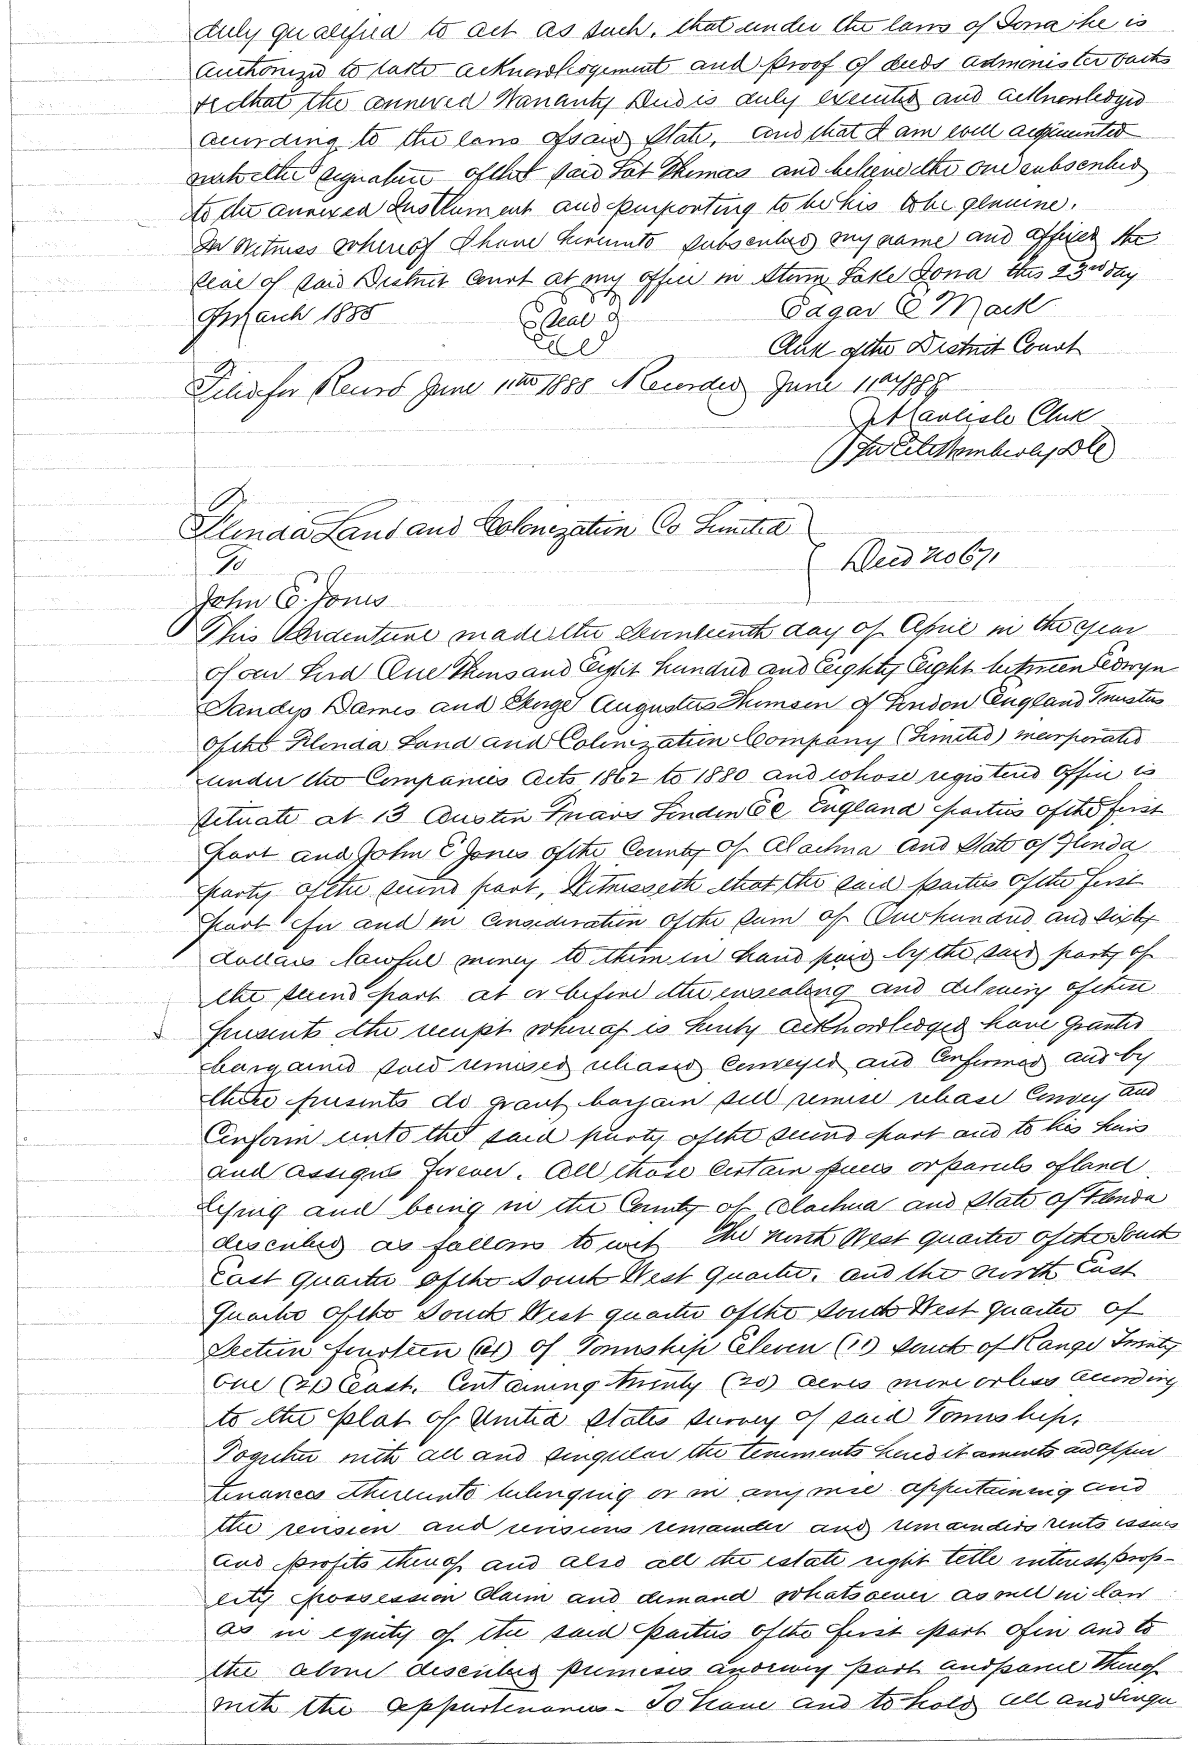 duly qualified to act as such, that under the laws of Iowa he is
authorized to take acknowledgement and proof of deeds administer oaths
&c that the annexed Warranty Deed is duly executed and acknowledged
according to the laws of said State, and that I am well acquainted
with the signature of the said Pat Thomas and believe the one subscribed
to the annexed Instrument and purporting to be his to be genuine.
In Witness whereof I have hereunto subscribed my name and affixed the
seal of said District Court at my office in Storm Lake Iowa this 23rd day
of March 1888
Seal
Edgar E Mack
Clerk of the District Court
Filed for Record June 11th 1888 Recorded June 11th 1888
Clerk
Florida Land and Colonization Co Limited
To
Deed No 671
John E. Jones
This Indenture made the Seventeenth day of April in the year
of our Lord One Thousand Eight hundred and Eighty Eight between Edwyn
Sandys Dawes and George Augustus Thomson of London England Trustees
of the Florida Land and Colonization Company (Limited) incorporated
under the Companies Acts 1862 to 1880 and whose registered office is
situate at 13 Austin Friars London E C England parties of the first
part and John E Jones of the County of Alachua and State of Florida
party of the second part, Witnesseth that the said parties of the first
part for and in consideration of the sum of One hundred and sixty
dollars lawful money to them in hand paid by the said party of
the second part at or before the ensealing and delivery of these
presents the receipt whereof is hereby acknowledged have granted
bargained sold remised released conveyed and confirmed and by
these presents do grant bargain sell remise release convey and
Confirm unto the said party of the second part and to his heirs
and assigns forever. All those certain pieces or parcels of land
lying and being in the County of Alachua and State of Florida
described as follows to wit The north West quarter of the South
East quarter of the South West quarter. and the north East
quarter of the South West quarter of the South West quarter of
Section fourteen (14) of Township Eleven (11) South of Range Twenty
one (21) East. Containing twenty (20) acres more or less according
to the plat of United States survey of said Township.
Together with all and singular the tenements hereditaments and appur
tenances thereunto belonging or in any wise appertaining and
the revsion and revsions remainder and remainders rents issues
and profits thereof and also all the estate right title interest, prop-
erty possession claim and demand whatsoever as well in law
as in equity of the said parties of the first part of in and to
the above described premises and every part and parcel thereof
with the appurtenances - To have and to hold all and singu